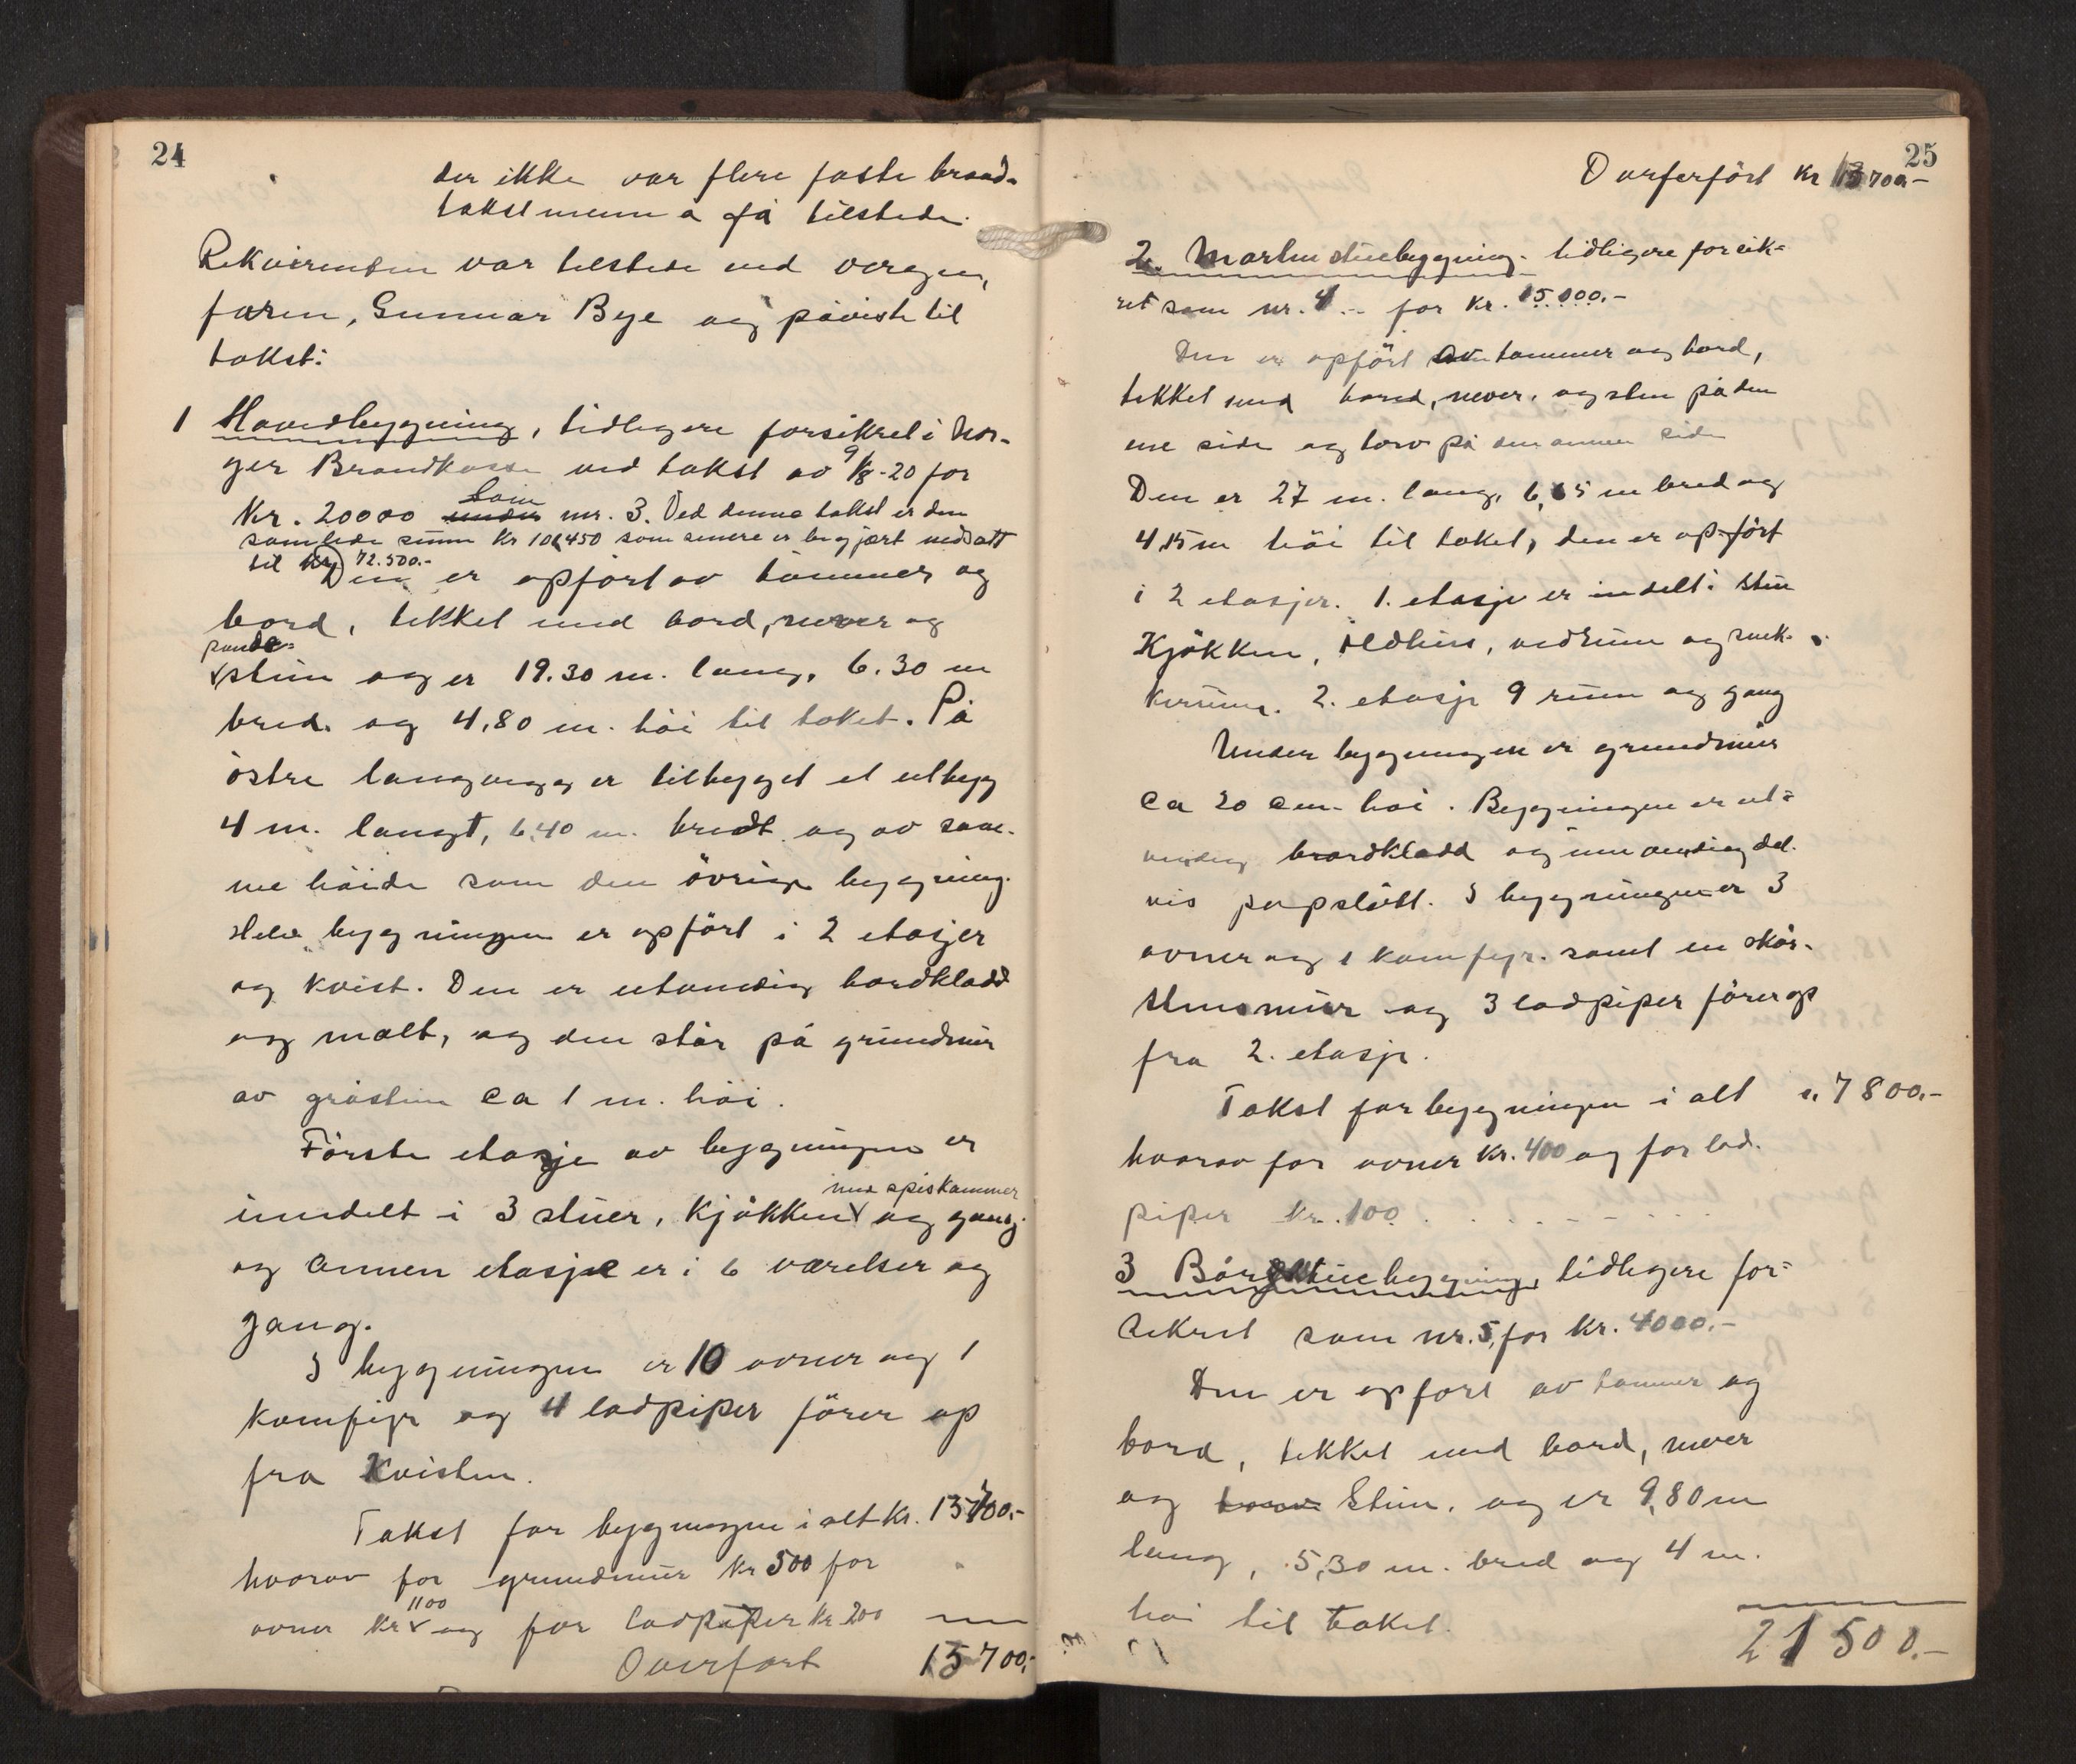 24
der ikke var flere faste brand-
takstmenn å få tilstede.
Rekvirenten var tilstede ved vergen,
faren, Gunnar Bye og påviste til
takst:
1 Hovedbygning, tidligere forsikret i Nor-
ges Brandkasse ved takst av 9/8-20 for
Kr. 20000 som nr. 3. Ved denne takst er den
samlede sum Kr 450 som senere er begjært nedsatt
til Kr 72.500.-
Den er opført av tømmer og
bord, tekket med bord, never og
pande-
sten og er 19.30 m. lang, 6.30 m
bred og 4,80 m. høi til taket. På
østre langvegg er tilbygget et utbygg
4 m. langt, 6,40 m. bredt og av sam-
me høide som den øvrige bygning.
Hele bygningen er opført i 2 etasjer
og kvist. Den er utvendig bordkladd
og malt, og den står på grundmur
av gråsten ca 1 m. høi.
Første etasje av bygningen er
med spiskammer
inndelt i 3 stuer, kjøkken og gang
og annen etasje er i 6 værelser og
gang.
I bygningen er 10 ovner og 1
komfyr og 4 ladpiper fører op
fra kvisten.
Takst for bygningen i alt Kr. 13700.-
hvorav for grundmur Kr 500 for
1100
ovner Kr og for ladpiper Kr 200
Overført 13700.-
25
Overført Kr 13700.-
2. Marken stuebygning tidligere forsik-
ret som nr. 4 for Kr. 15.000.-
Den er opført av tømmer og bord,
tekket med bord, never og sten på den
ene side og torv på den annen side
Den er 27 m. lang, 6,65 m bred og
4,15 m høi til taket, den er opført
i 2 etasjer. 1. etasje er inndelt i stue
Kjøkken, ildhus, vedrum og
2. etasje 9 rum og gang
Under bygningen er grundmur
ca 20 cm. høi. Bygningen er ut-
vendig bordkladd og innvendig del-
vis papslått. I bygningen er 3
ovner og 1 komfyr samt en skor-
stensmur og 3 ladpiper fører op
fra 2. etasje.
Takst for bygningen i alt " 7800.-
hvorav for ovner Kr. 400 og for lad-
piper Kr. 100
3 Borgstuebygning, tidligere for-
sikret som nr. 5, for Kr. 4000.-
Den er opført av tømmer og
bord, tekket med bord, never
og sten, og er 9,80 m
lang, 5,30 m. bred og 4 m.
høi til taket.
21500.-